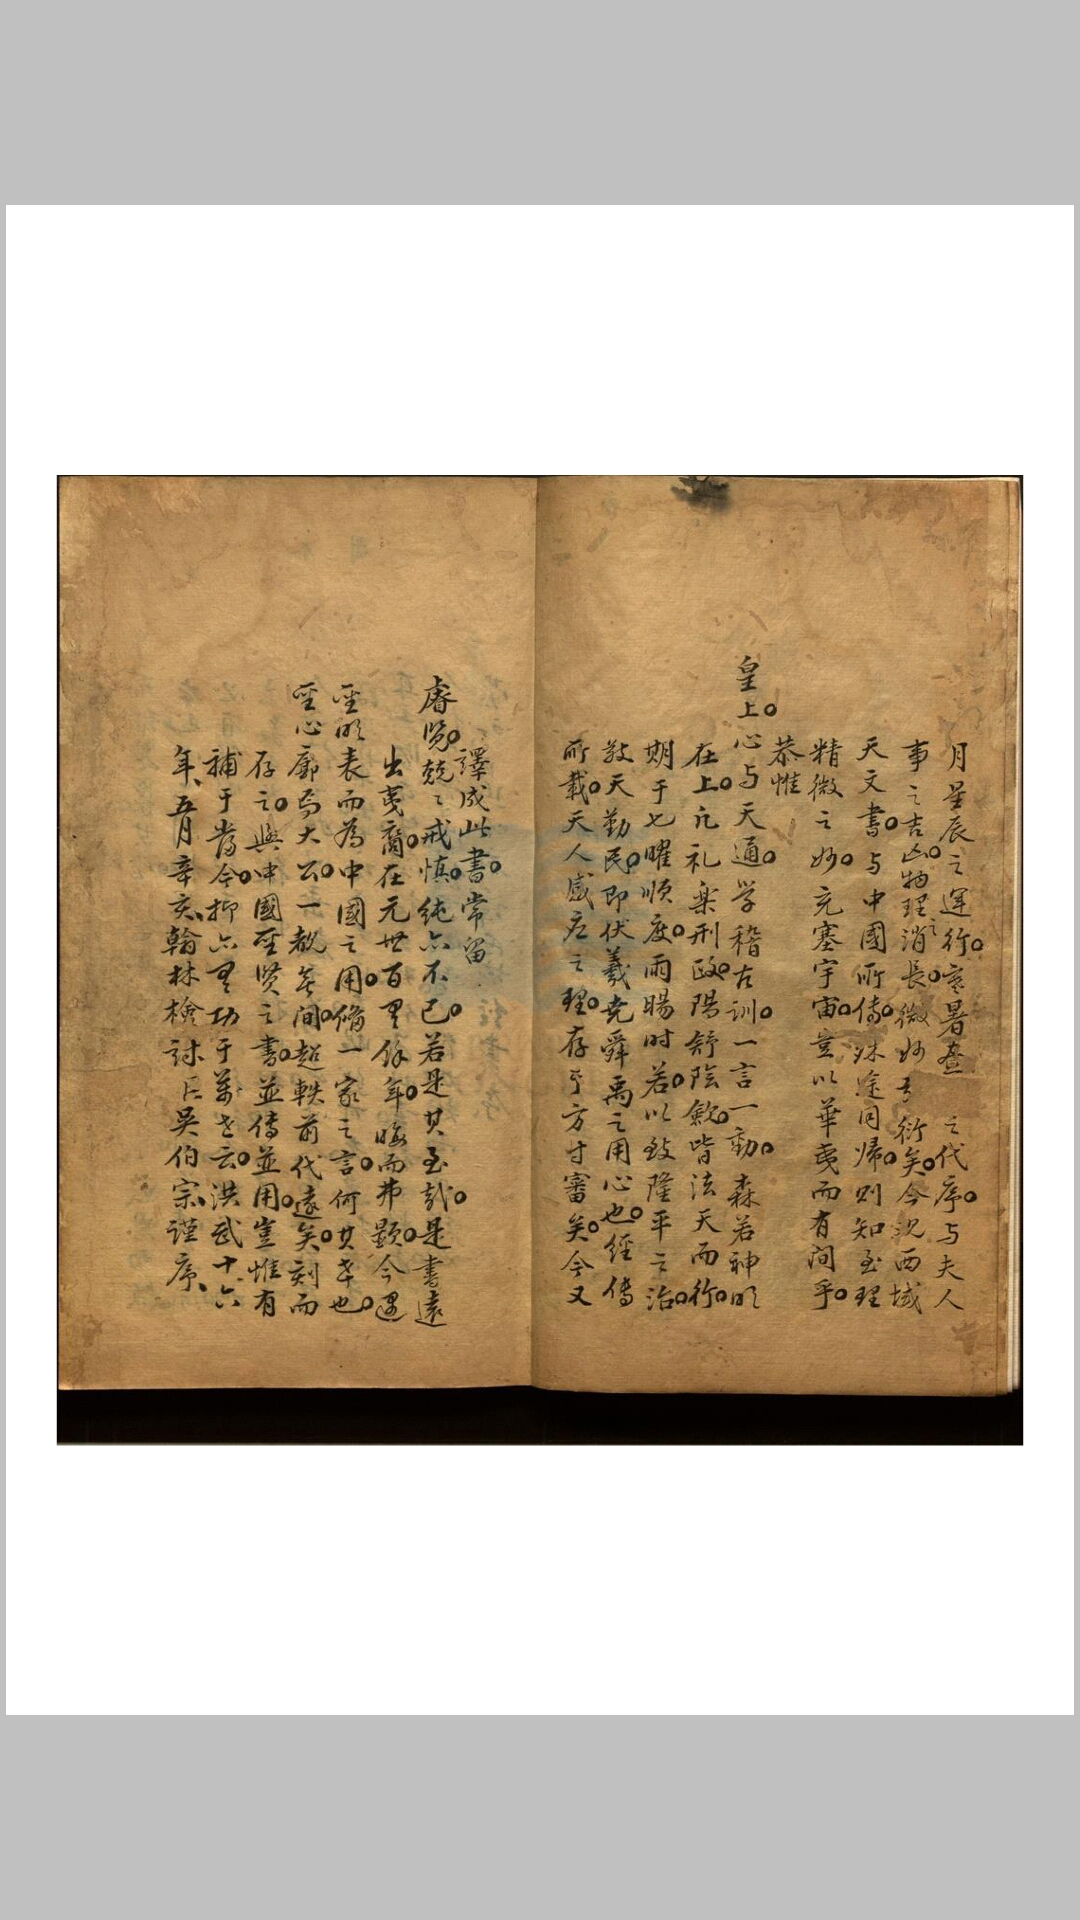 月星辰之運行。寒暑晝　之代序。与夫人
事之吉凶。物理之消長。微妙　衍矣。今況西域
天文書。与中國所傳。殊途同帰。則知至理
精微之妙。充塞宇宙。豈以華夷而有间乎。
恭惟
皇上。心与天通。学稽古训。一言一動。森若神明
在上。凢礼楽刑政。陽舒陰歛。皆法天而行。
期于七曜順度。雨暘时若。以致隆平之治。
敬天勤民。即伏羲尭舜禹之用心也。經傳
所載。天人感应之理。存乎方寸審矣。今又
譯成此書。常留
睿览。兢〻戒慎。純亦不已。若是其至哉。是書遠
出夷裔。在元世百里馀年。晦而弗顕。今遇
聖明表而為中國之用。俻一家之言。何其幸也。
聖心廓焉大公。一視無间。超軼前代遠矣。刻而
存之。與中國聖贤之書。並傳並用。豈惟有
補于當今。抑亦有功于萬世云。洪武十六
年、五月辛亥、翰林檢討臣吴伯宗謹序、